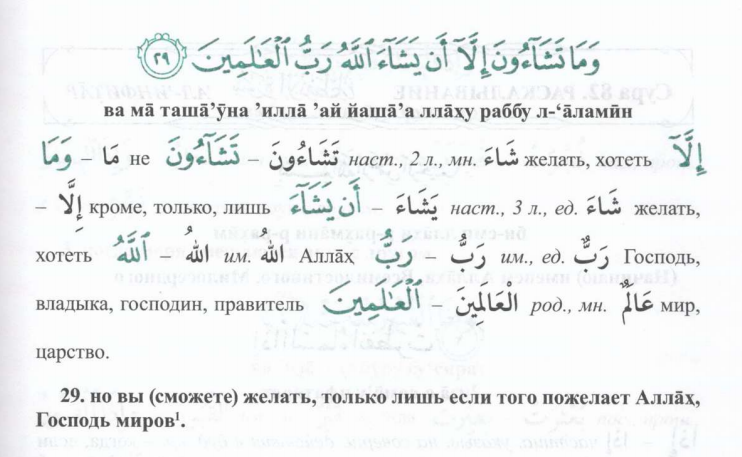 وَمَا تَشَآءُونَ إِلَّآ أَن يَشَآءَ ٱللَّهُ رَبُّ ٱلْعَـٰلَمِينَ ٢٩
ва мā ташā’ӯна ’иллā ’ай йашā’а ллāҳу раббу л-‘āламӣн
وَمَا – مَا не تَشَآءُونَ – تَشَاءُونَ наст., 2 л., мн. شَاءَ желать, хотеть إِلَّآ
– إِلَّا кроме, только, лишь أَن يَشَآءَ – يَشَاءَ наст., 3 л., ед. شَاءَ желать,
хотеть ٱللَّهُ – اللهُ им. اللهُ Аллāх رَبُّ – رَبُّ им., ед. رَبٌّ Господь,
владыка, господин, правитель ٱلْعَـٰلَمِينَ – الْعَالَمِينَ род., мн. عَالَمٌ мир,
царство.
29. но вы (сможете) желать, только лишь если того пожелает Аллāх,
Господь миров¹.
Сура 82. РАСКАЛЫВАНИЕ